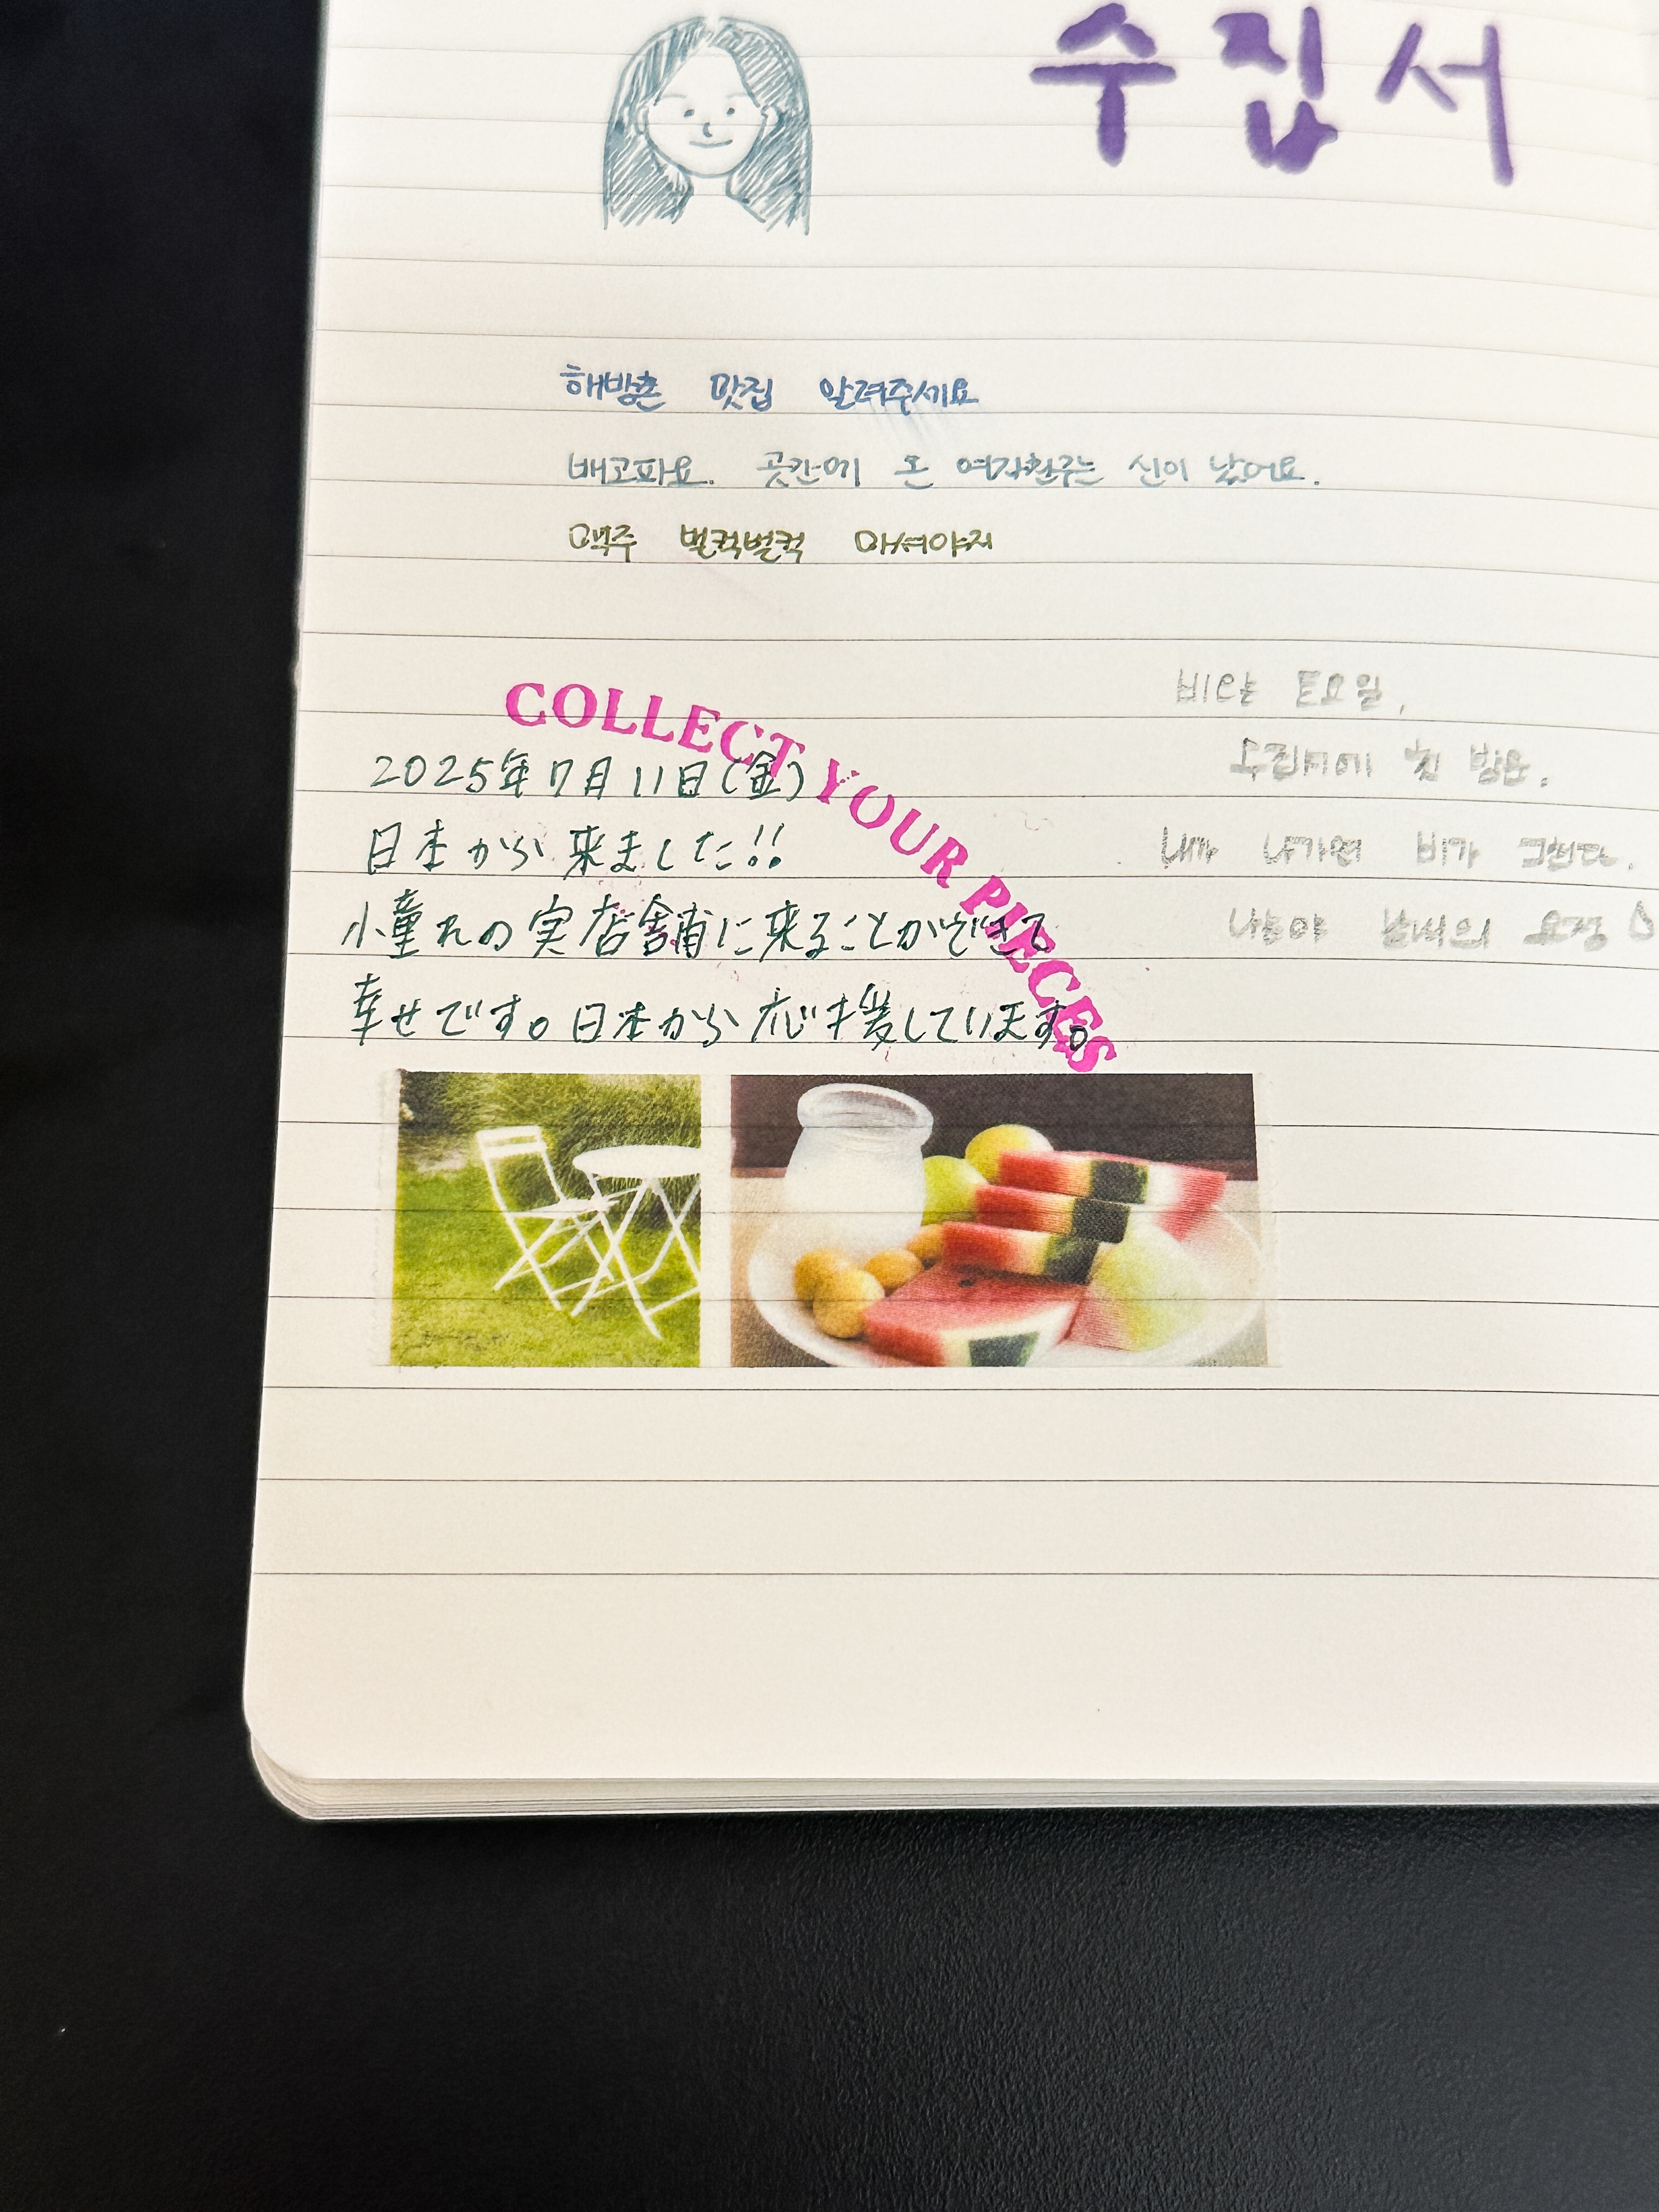 수집서
해방촌 맛집 알려주세요
배고파요. 곳간에 온 여자친구는 신이 났어요.
맥주 벌컥벌컥 마셔야지
COLLECT YOUR PIECES
2025年7月11日(金)
日本から来ました!!
の実店舗に来ることができて
幸せです。日本から応援しています。
토요일,
첫 방문.
내가 나가면 비가 그친다.
나는야 날씨의 요정